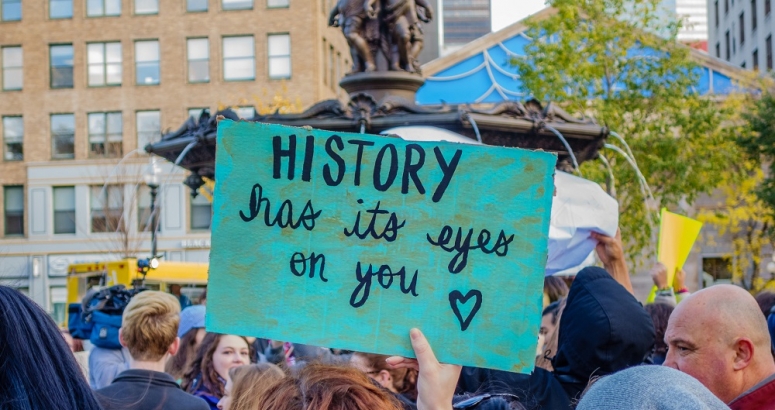 HISTORY
has its eyes
on you ♡